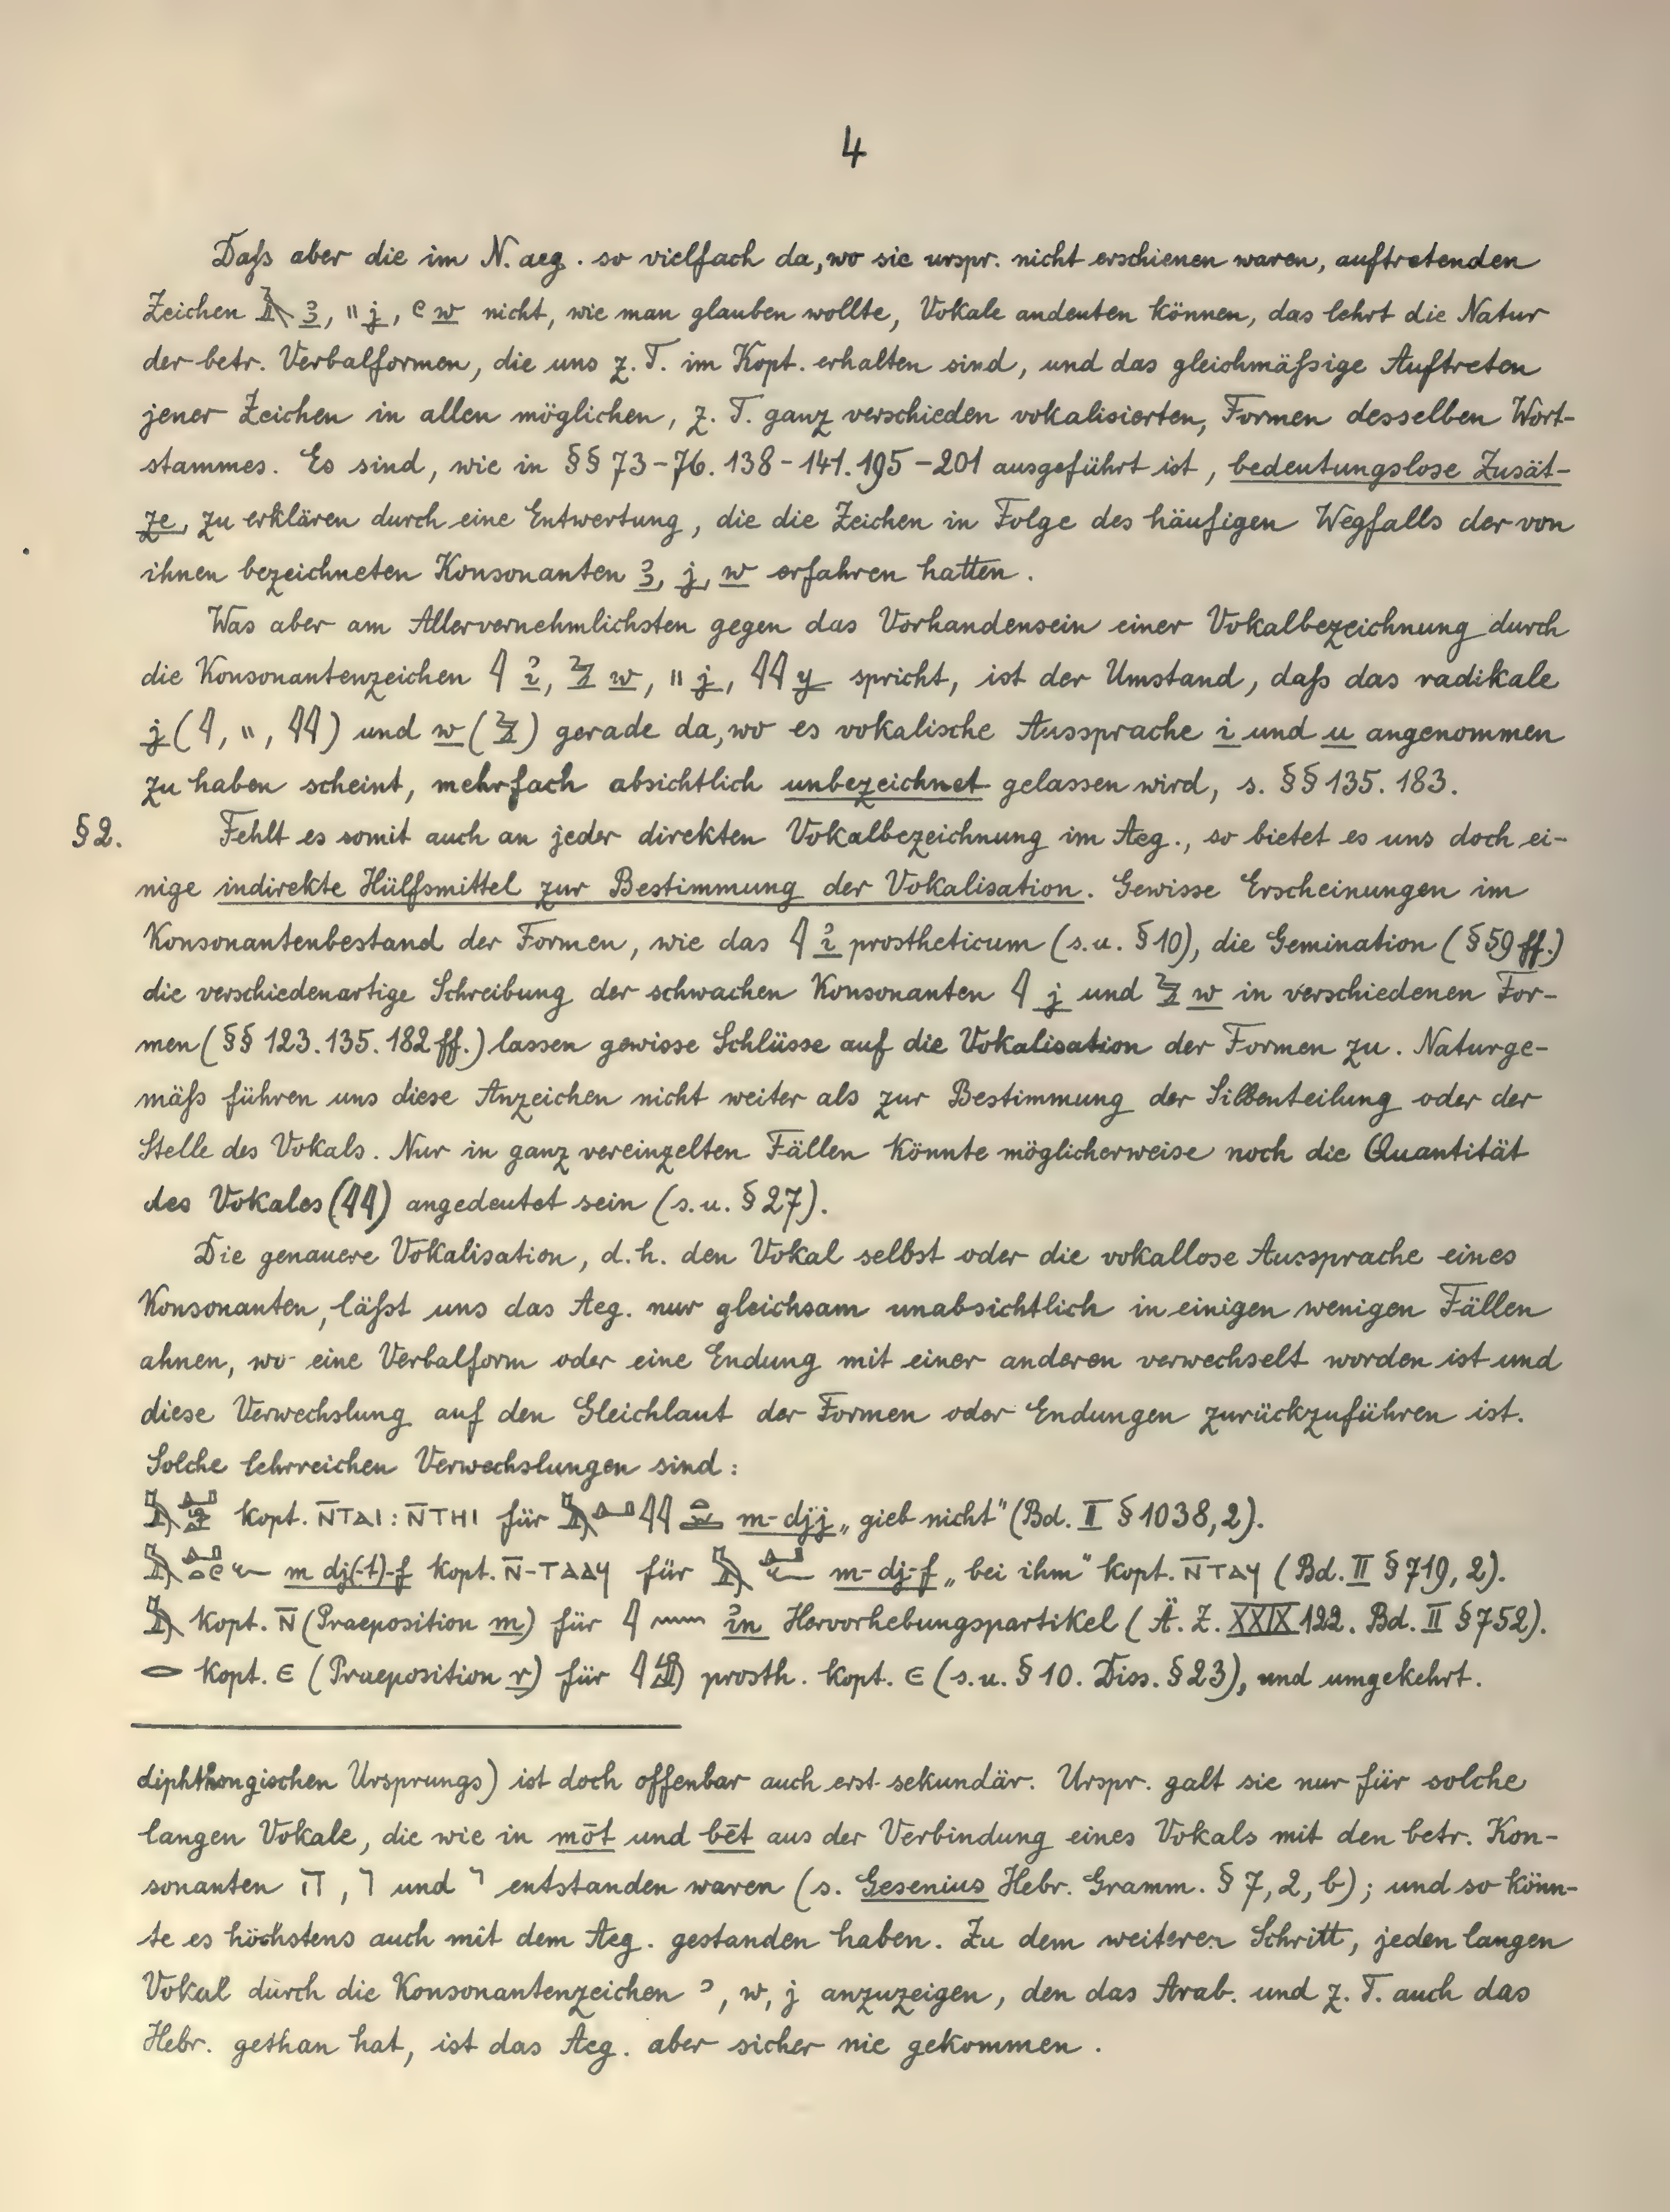 4
Daſs aber die im N. aeg. so vielfach da, wo sie urspr. nicht erschienen waren, auftretenden
Zeichen 𓄿 ꜣ, 𓏭 j, 𓏲 w nicht, wie man glauben wollte, Vokale andeuten können, das lehrt die Natur
der betr. Verbalformen, die uns z. T. im Kopt. erhalten sind, und das gleichmäſsige Auftreten
jener Zeichen in allen möglichen, z. T. ganz verschieden vokalisierten, Formen desselben Wort-
stammes. Es sind, wie in §§ 73-76. 138-141. 195-201 ausgeführt ist, bedeutungslose Zusät-
ze, zu erklären durch eine Entwertung, die die Zeichen in Folge des häufigen Wegfalls der von
ihnen bezeichneten Konsonanten ꜣ, j, w erfahren hatten.
Was aber am Allervernehmlichsten gegen das Vorhandensein einer Vokalbezeichnung durch
die Konsonantenzeichen 𓇋 ꞽ, 𓅱 w, 𓏭 j, 𓇌 y spricht, ist der Umstand, daſs das radikale
j (𓇋, 𓏭, 𓇌) und w (𓅱) gerade da, wo es vokalische Aussprache i und u angenommen
zu haben scheint, mehrfach absichtlich unbezeichnet gelassen wird, s. §§ 135. 183.
§ 2. Fehlt es somit auch an jeder direkten Vokalbezeichnung im Aeg., so bietet es uns doch ei-
nige indirekte Hülfsmittel zur Bestimmung der Vokalisation. Gewisse Erscheinungen im
Konsonantenbestand der Formen, wie das 𓇋 ꞽ prostheticum (s. u. § 10), die Gemination (§ 59 ff.)
die verschiedenartige Schreibung der schwachen Konsonanten 𓇋 j und 𓅱 w in verschiedenen For-
men (§§ 123. 135. 182 ff.) lassen gewisse Schlüsse auf die Vokalisation der Formen zu. Naturge-
mäſs führen uns diese Anzeichen nicht weiter als zur Bestimmung der Silbenteilung oder der
Stelle des Vokals. Nur in ganz vereinzelten Fällen könnte möglicherweise noch die Quantität
des Vokales (𓇌) angedeutet sein (s. u. § 27).
Die genauere Vokalisation, d. h. den Vokal selbst oder die vokallose Aussprache eines
Konsonanten, läſst uns das Aeg. nur gleichsam unabsichtlich in einigen wenigen Fällen
ahnen, wo eine Verbalform oder eine Endung mit einer anderen verwechselt worden ist und
diese Verwechslung auf den Gleichlaut der Formen oder Endungen zurückzuführen ist.
Solche lehrreichen Verwechslungen sind:
kopt. N̄ΤΑΙ : N̄ΤΗΙ für m-djj „gieb nicht" (Bd. II § 1038, 2).
m dj(-t)-f kopt. N̄-ΤΑΑϤ für m-dj-f „bei ihm" kopt. N̄ΤΑϤ (Bd. II § 719, 2).
𓅓 kopt. N̄ (Praeposition m) für 𓇋𓈖 ꞽn Hervorhebungspartikel (Ä. Z. XXIX 122. Bd. II § 752).
𓂋 kopt. Є (Praeposition r) für 𓇋𓀁 prosth. kopt. Є (s. u. § 10. Diss. § 23), und umgekehrt.
diphthongischen Ursprungs) ist doch offenbar auch erst sekundär. Urspr. galt sie nur für solche
langen Vokale, die wie in mōt und bēt aus der Verbindung eines Vokals mit den betr. Kon-
sonanten ה, ו und י entstanden waren (s. Gesenius Hebr. Gramm. § 7, 2, b); und so könn-
te es höchstens auch mit dem Aeg. gestanden haben. Zu dem weiteren Schritt, jeden langen
Vokal durch die Konsonantenzeichen ʾ, w, j anzuzeigen, den das Arab. und z. T. auch das
Hebr. gethan hat, ist das Aeg. aber sicher nie gekommen.